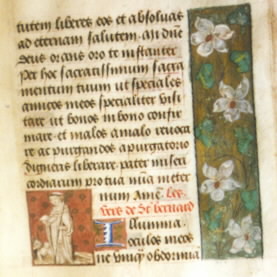 tutem liberes eos et absoluas
ad eternam salutem. an dñe
deus orans oro te instanter
Per hoc sacratissimum sacra
mentum tuum ut speciales
amicos meos specialiter visi
tare ut bonos in bono confir
mare et malos a malo reuoca
re ac purgandos a purgatorio
digneris liberare pater miseri
cordiarum pro tua mater
num amē. Les
vers de St bernard
Illumina
oculos meos
ne vnqȝ obdormiā